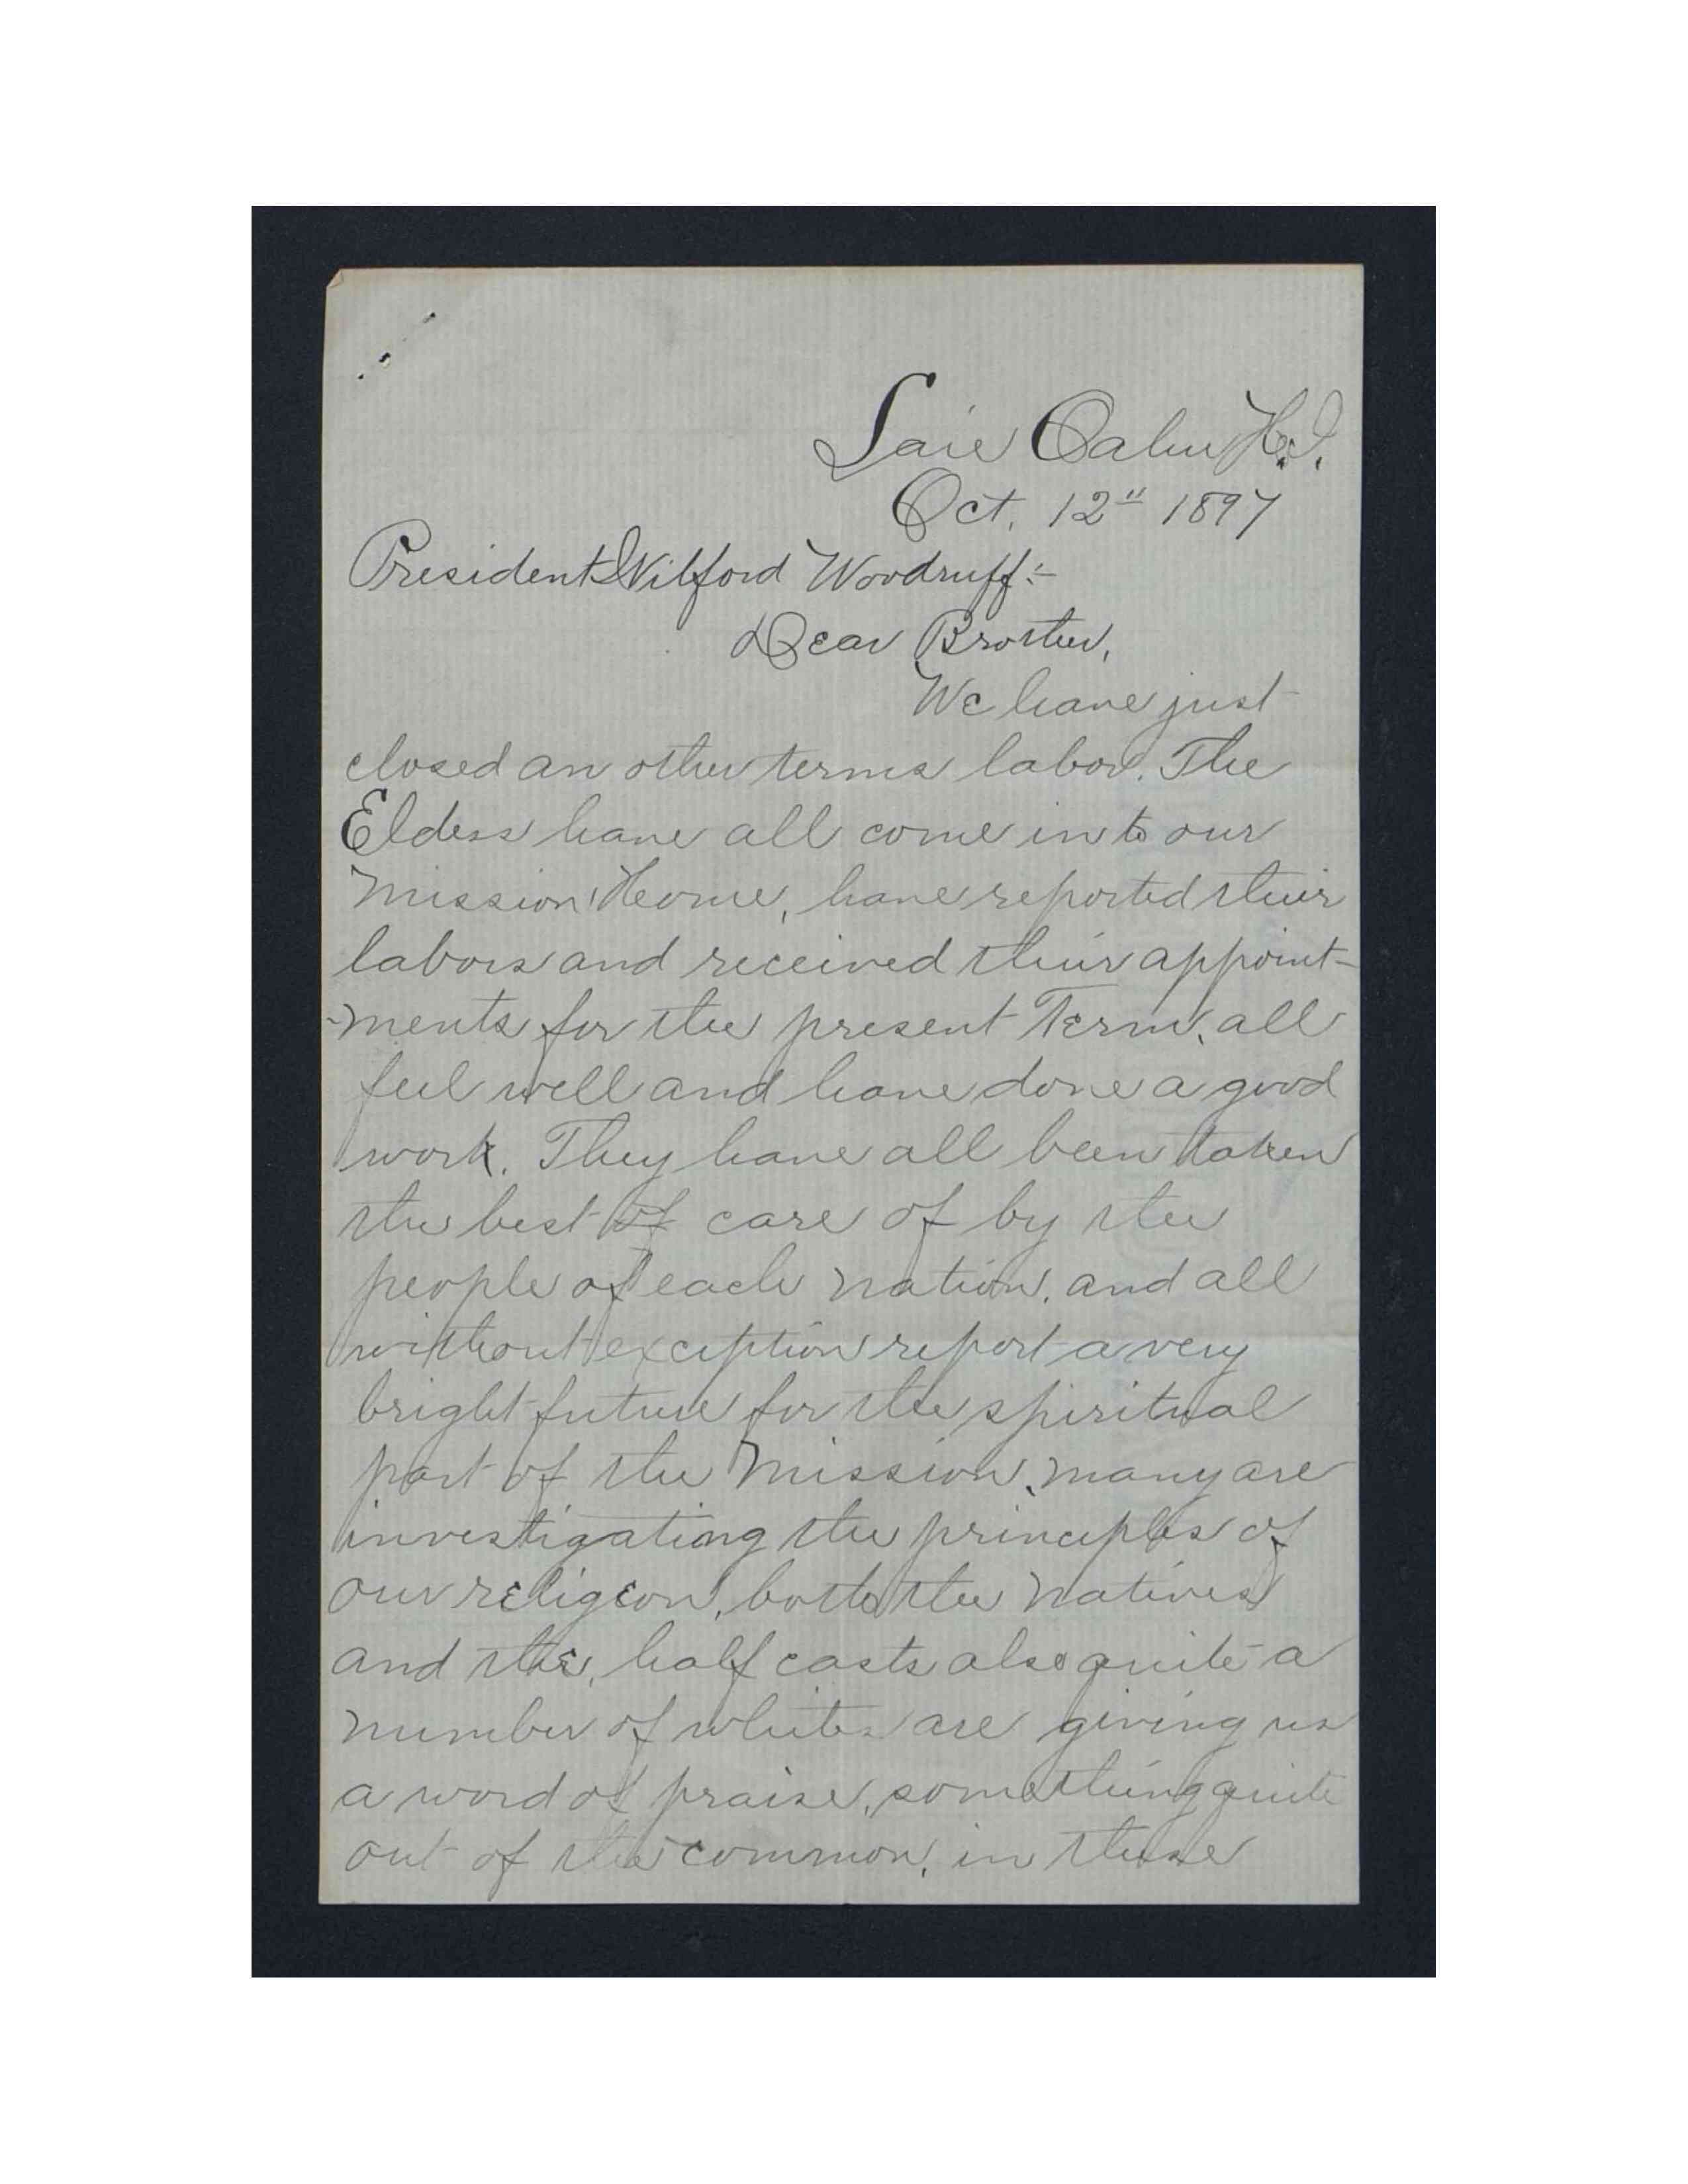 Laie Oahu H.I.
Oct. 12" 1897
President Wilford Woodruff:-
Dear Brother,
We have just
closed an other terms labor. The
Elders have all come in to our
Mission Home, have reported their
labors and received their appoint-
-ments for the present Term, all
feel well and have done a good
work. They have all been taken
the best of care of by the
people of each nation, and all
without exception report a very
bright future for the spiritual
part of the Mission, many are
investigating the principles of
our religeon, both the natives
and the, half casts also quite a
number of whites are giving us
a word of praise, something quite
out of the common, in these